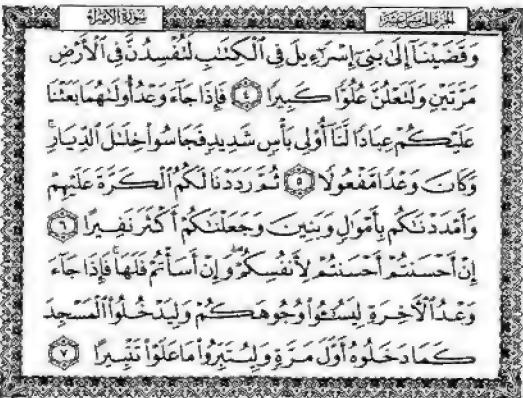 سُورَةُ الإِسْرَاءِ
الجُزْءُ الخَامِسَ عَشَرَ
وَقَضَيْنَآ إِلَىٰ بَنِىٓ إِسْرَٰٓءِيلَ فِى ٱلْكِتَٰبِ لَتُفْسِدُنَّ فِى ٱلْأَرْضِ
مَرَّتَيْنِ وَلَتَعْلُنَّ عُلُوًّا كَبِيرًا ٤ فَإِذَا جَآءَ وَعْدُ أُولَىٰهُمَا بَعَثْنَا
عَلَيْكُمْ عِبَادًا لَّنَآ أُو۟لِى بَأْسٍ شَدِيدٍ فَجَاسُوا۟ خِلَٰلَ ٱلدِّيَارِ ۚ
وَكَانَ وَعْدًا مَّفْعُولًا ٥ ثُمَّ رَدَدْنَا لَكُمُ ٱلْكَرَّةَ عَلَيْهِمْ
وَأَمْدَدْنَٰكُم بِأَمْوَٰلٍ وَبَنِينَ وَجَعَلْنَٰكُمْ أَكْثَرَ نَفِيرًا ٦
إِنْ أَحْسَنتُمْ أَحْسَنتُمْ لِأَنفُسِكُمْ ۖ وَإِنْ أَسَأْتُمْ فَلَهَا ۚ فَإِذَا جَآءَ
وَعْدُ ٱلْءَاخِرَةِ لِيَسُۥٓـُٔوا۟ وُجُوهَكُمْ وَلِيَدْخُلُوا۟ ٱلْمَسْجِدَ
كَمَا دَخَلُوهُ أَوَّلَ مَرَّةٍ وَلِيُتَبِّرُوا۟ مَا عَلَوْا۟ تَتْبِيرًا ٧